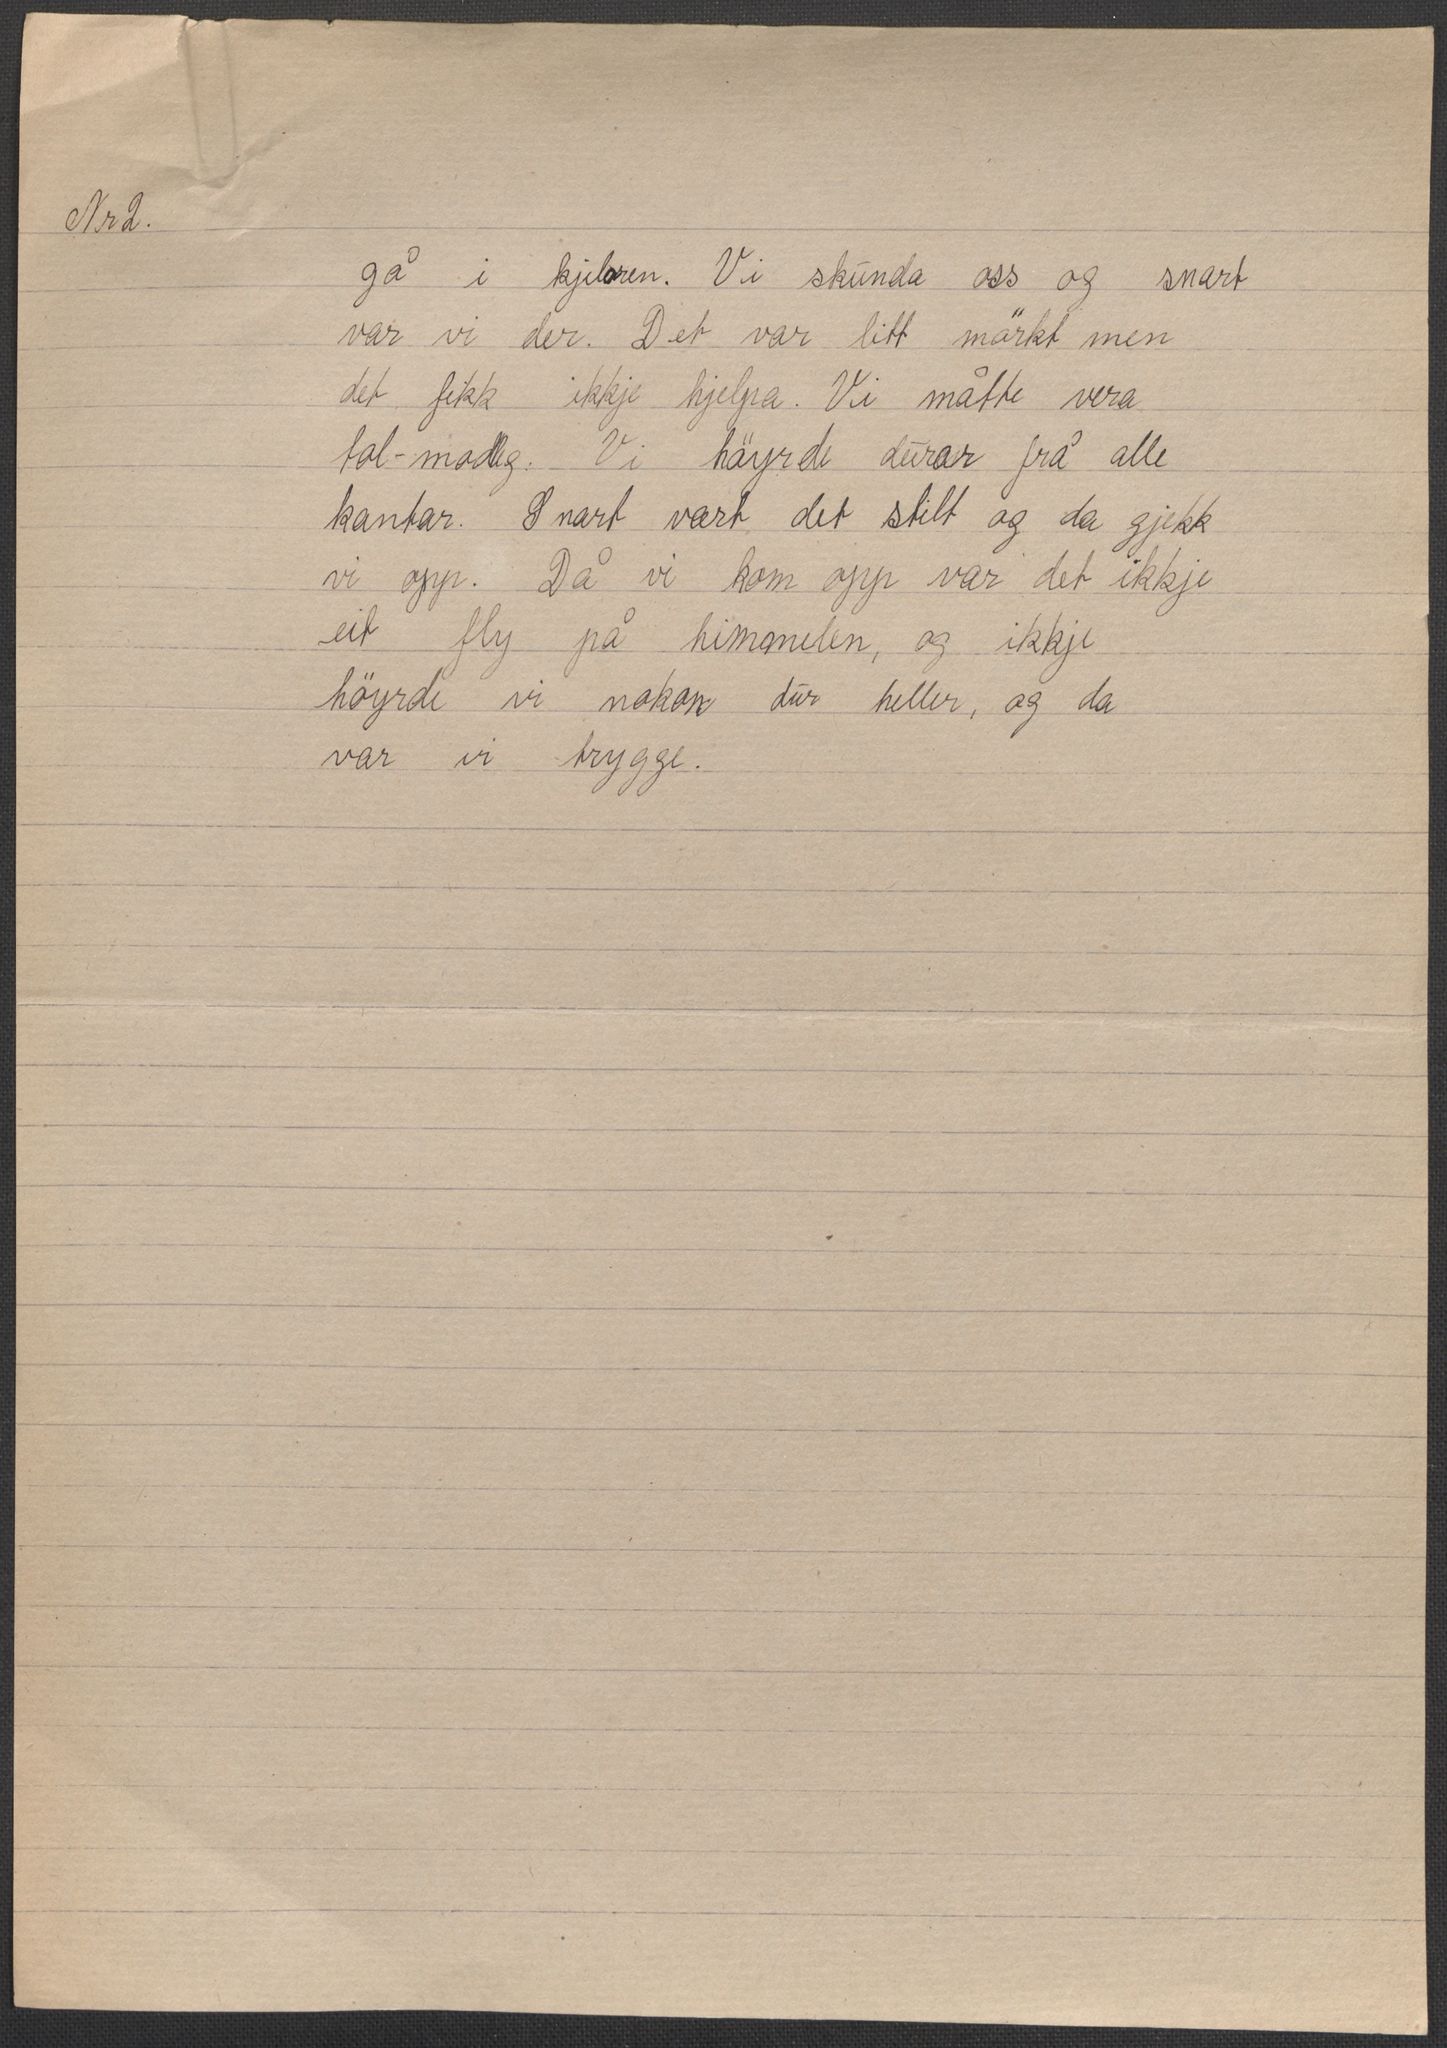 Nr 2.
gå i kjelaren. Vi skunda oss og snart
var vi der. Det var litt mörkt men
det fikk ikkje hjelpa. Vi måtte vera
tol-modig. Vi höyrde durar frå alle
kantar. Snart vart det stilt og da gjekk
vi opp. Då vi kom opp var det ikkje
eit fly på himmelen, og ikkje
höyrde vi nokon dur heller, og da
var vi trygge.